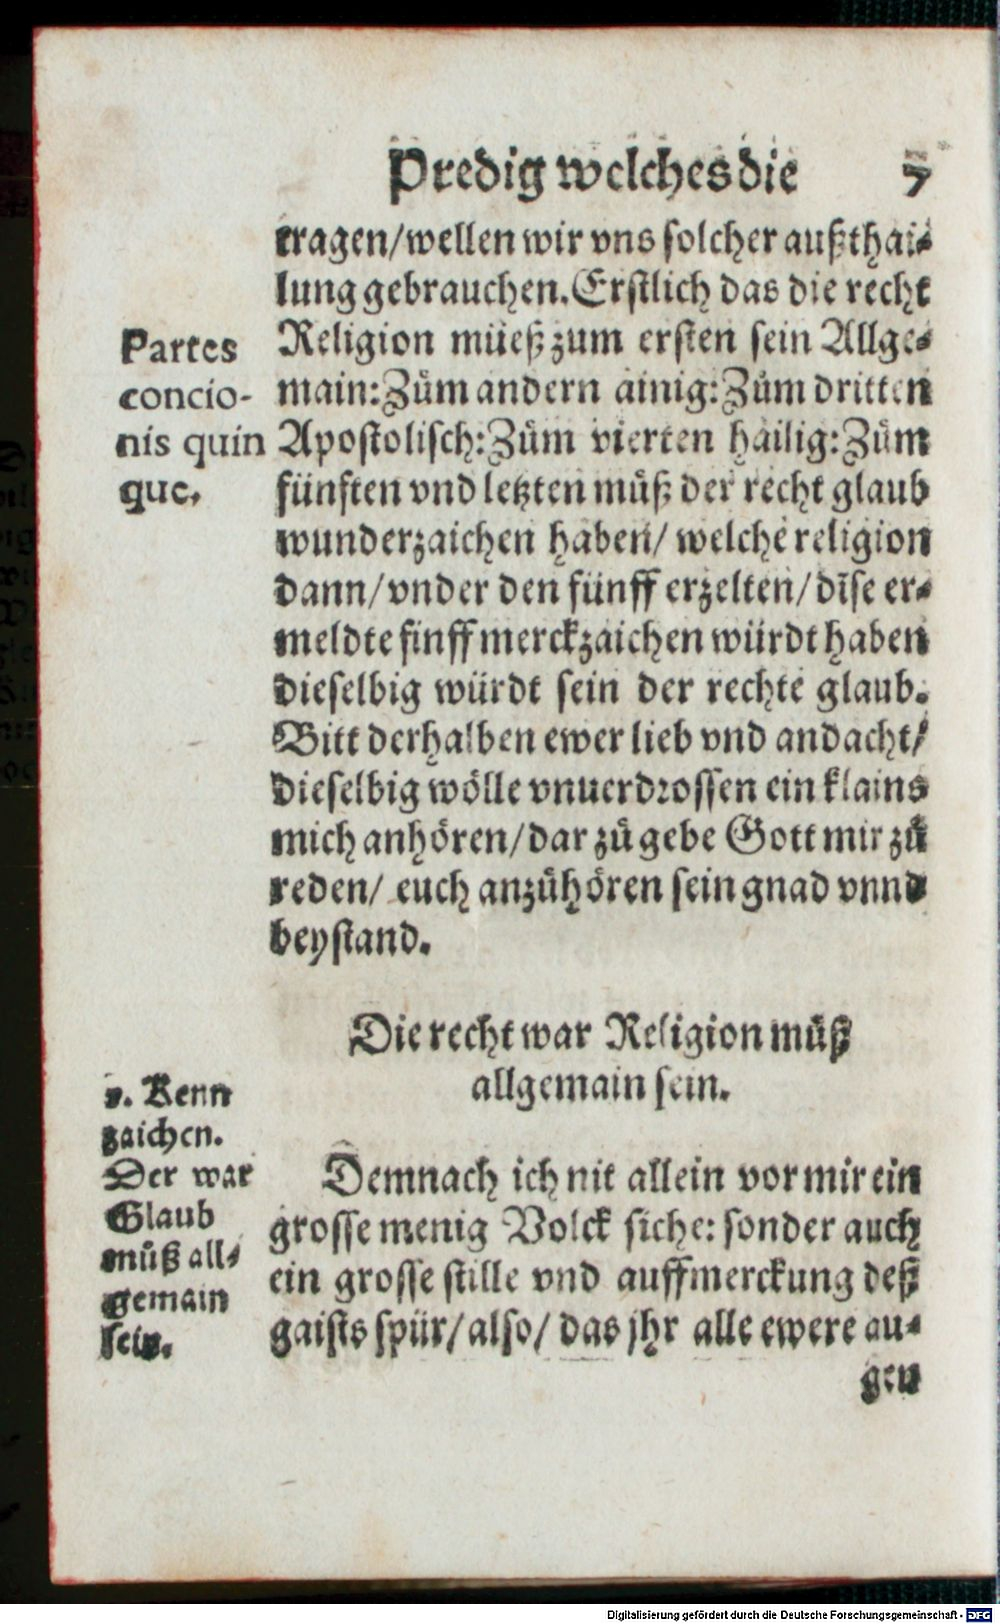 Predig welches die 7
tragen/wellen wir vns solcher außthai-
lung gebrauchen. Erstlich das die recht
Religion müeß zum ersten sein Allge-
main: Zům andern ainig: Zům dritten
Apostolisch: Zům vierten hailig: Zům
fünften vnd letzten můß der recht glaub
wunderzaichen haben/ welche religion
dann/vnder den fünff erzelten/dise er-
meldte finff merckzaichen würdt haben
dieselbig würdt sein der rechte glaub.
Bitt derhalben ewer lieb vnd andacht/
dieselbig wölle vnuerdrossen ein klains
mich anhören/dar zů gebe Gott mir zů
reden/ euch anzůhören sein gnad vnnd
beystand.
Partes
concio-
nis quin
que.
Die recht war Religion můß
allgemain sein.
Kenn
zaichen.
Der war
Glaub
můß all-
gemain
sein.
Demnach ich nit allein vor mir ein
grosse menig Volck siche: sonder auch
ein grosse stille vnd auffmerckung deß
gaists spür/also/ das jhr alle ewere au-
gen
Digitalisierung gefördert durch die Deutsche Forschungsgemeinschaft - DFG